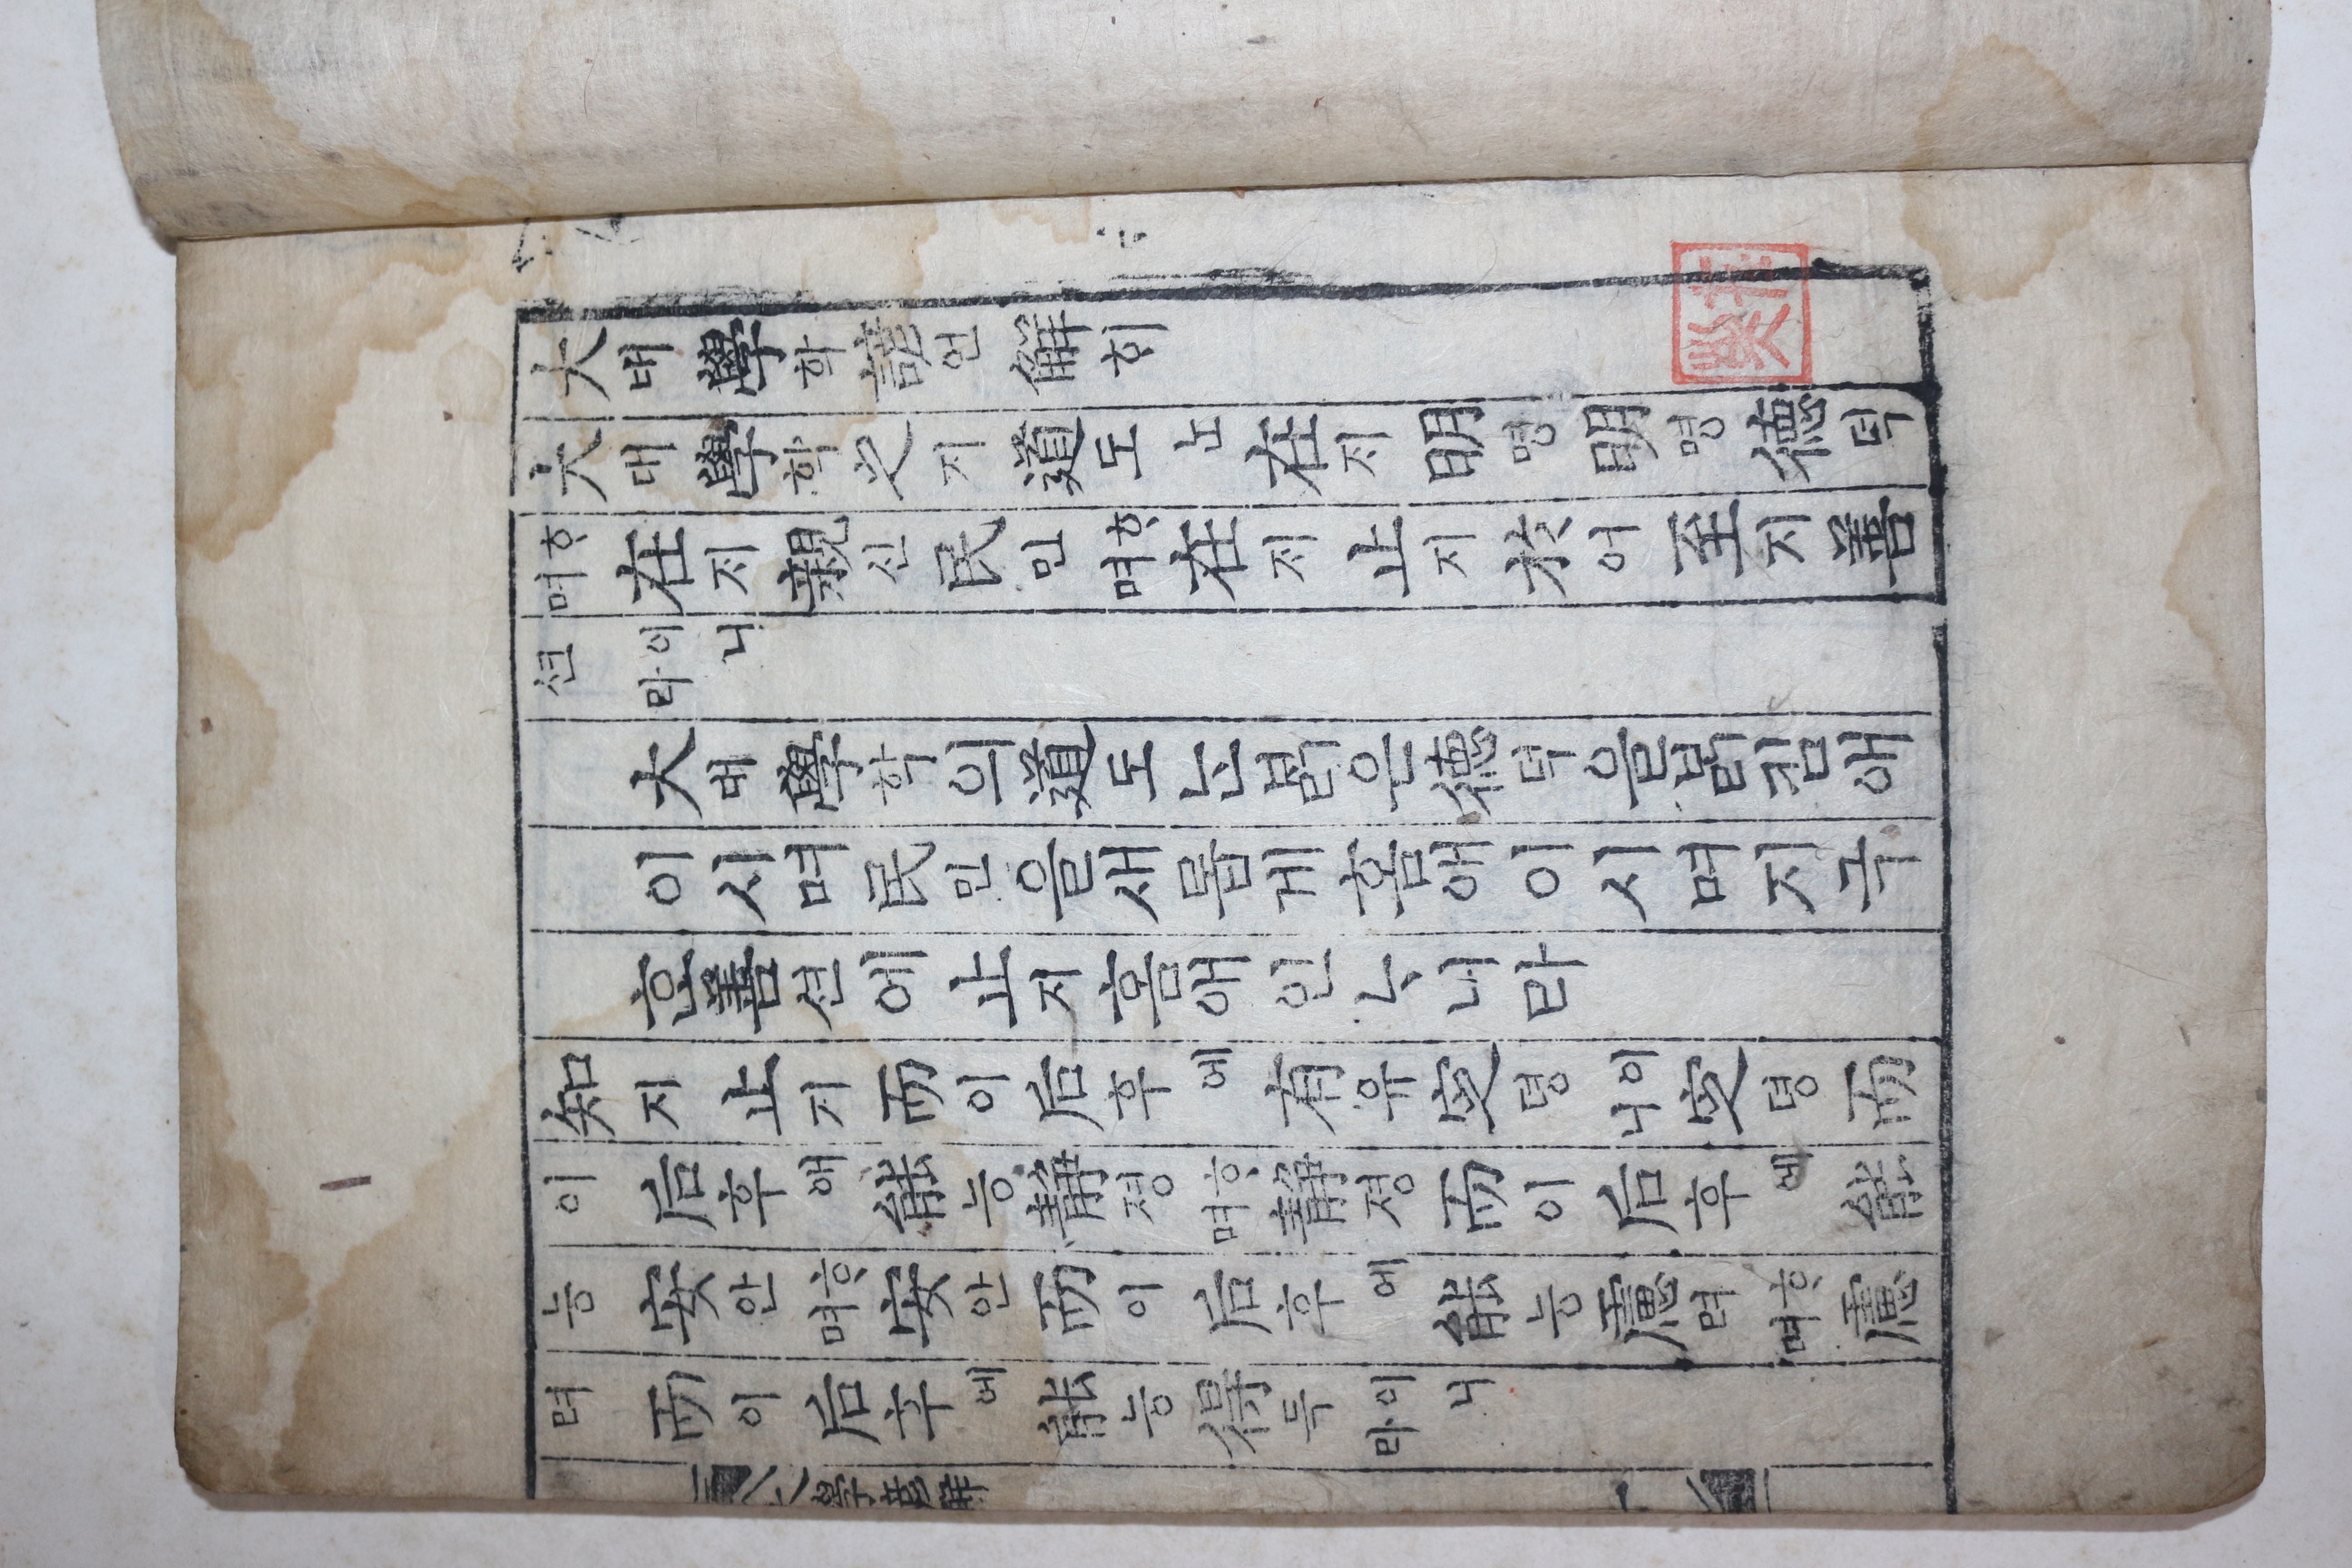 大대學학諺언解ᄒᆡ
大대學학之지道도ᄂᆞᆫ在ᄌᆡ明명明명德덕
ᄒᆞ며在ᄌᆡ親신民민ᄒᆞ며在ᄌᆡ止지於어至지善
션이니라
大대學학의道도ᄂᆞᆫᄇᆞᆰ은德덕을ᄇᆞᆰ김애
이시며民민을새롭게홈애이시며지극
ᄒᆞᆫ善션에止지홈애인ᄂᆞ니라
知지止지而이后후에有유㝎뎡이니㝎뎡而
이后후에能능靜졍ᄒᆞ며靜졍而이后후에能
능安안ᄒᆞ며安안而이后후에能능慮려ᄒᆞ며慮
려而이后후에能능得득이니라
大學諺解 一